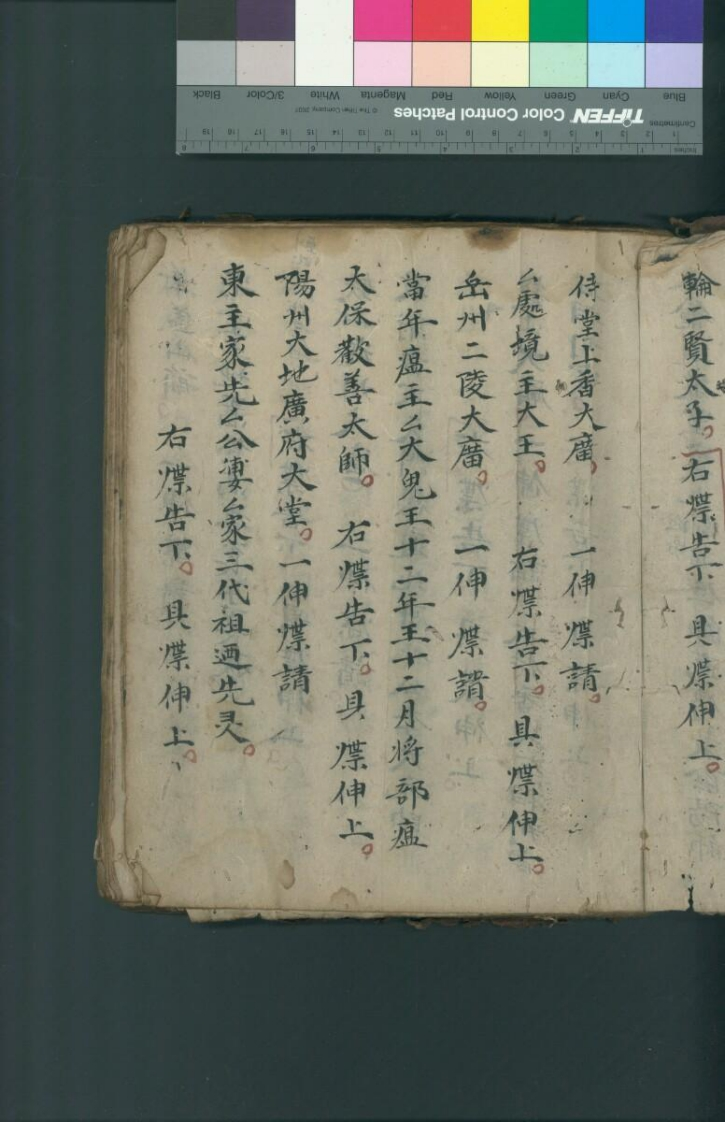 輪二賢太子。右㷸告下 具㷸伸上。
侍堂上香大㕔。 一伸 㷸請。
厶處境主大王。 右㷸告下。具㷸伸上。
岳州二陵大㕔。 一伸 㷸請。
當年瘟主厶大鬼王十二年王十二月将部瘟
太保歡善太師。 右㷸告下。具㷸伸上。
陽州大地廣府大堂。一伸㷸請
東主家先厶公妻厶家三代祖迺先灵。
右㷸告下。 具㷸伸上。
Black 3/Color White Magenta Red Yellow Green Cyan Blue
TIFFEN Color Control Patches
© The Tiffen Company, 2007
Centimetres
Inches